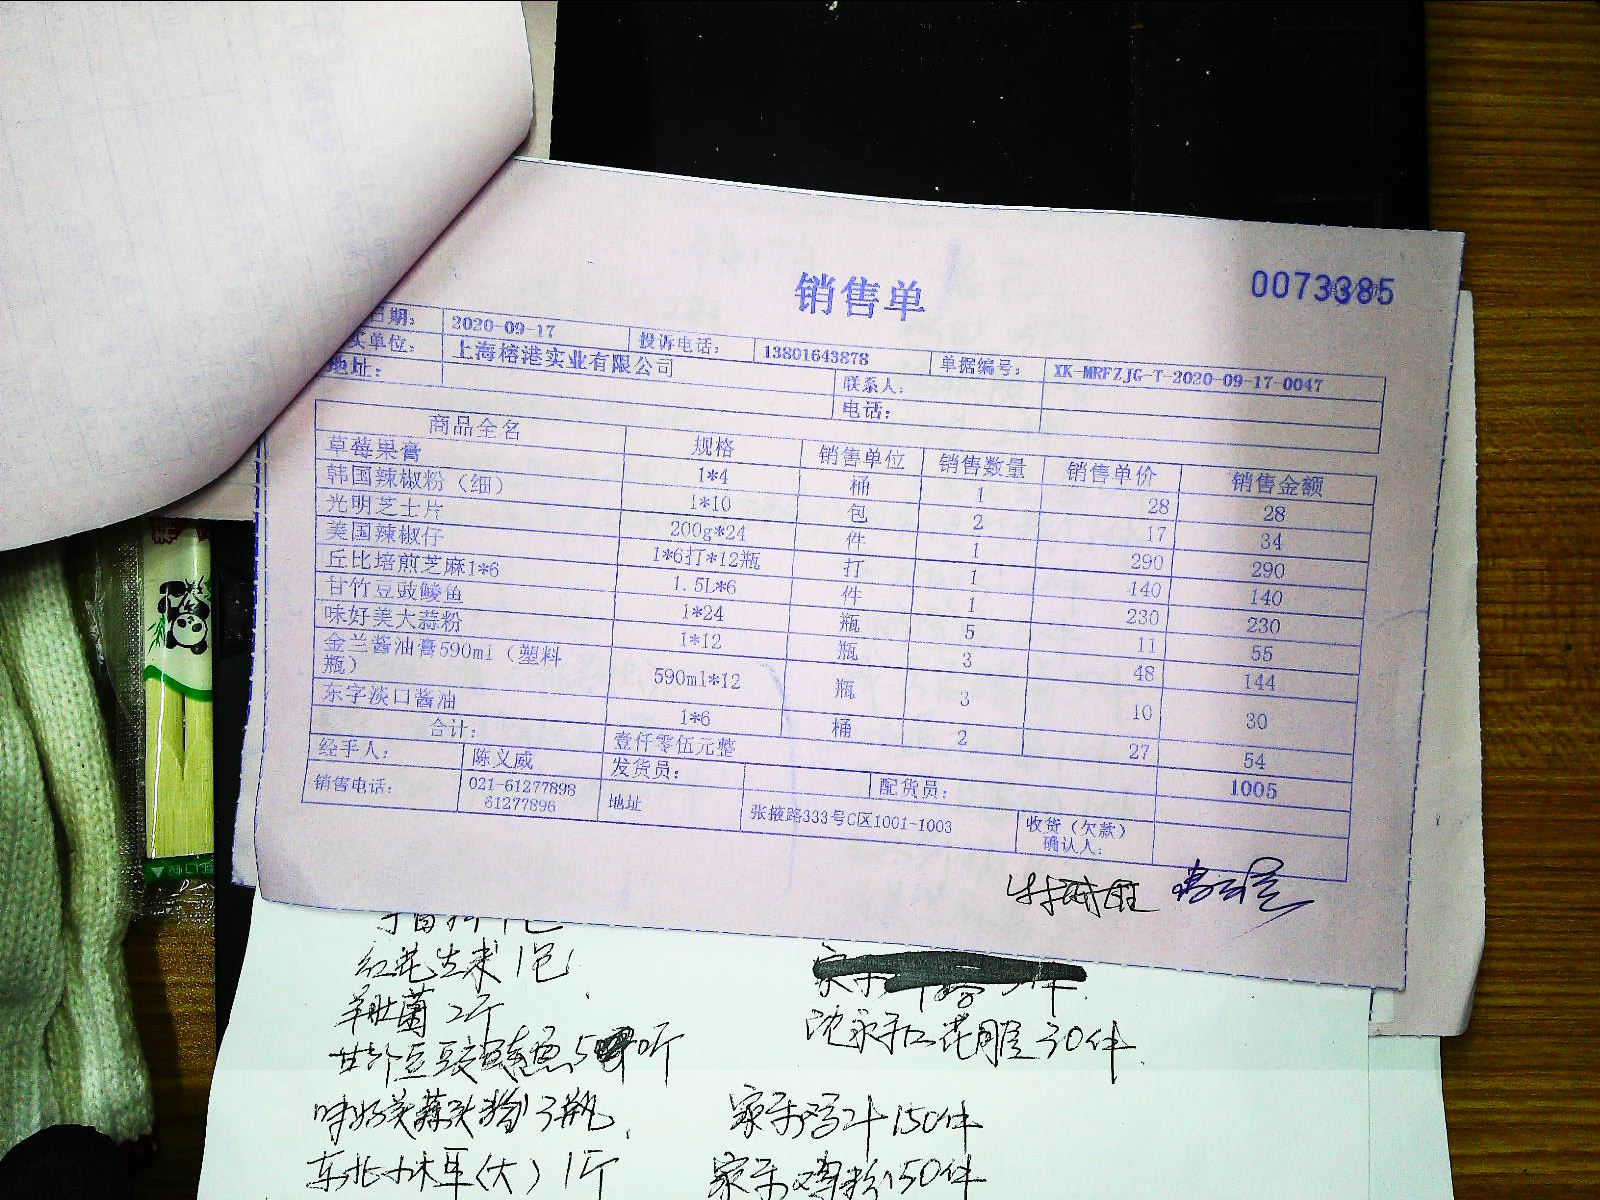 销售单
0073385
日期： 2020-09-17 投诉电话： 13801643878 单据编号： XK-MRFZJG-T-2020-09-17-0047
买单位： 上海榕港实业有限公司 联系人：
地址： 电话：
商品全名 规格 销售单位 销售数量 销售单价 销售金额
草莓果膏 1*4 桶 1 28 28
韩国辣椒粉（细） 1*10 包 2 17 34
光明芝士片 200g*24 件 1 290 290
美国辣椒仔 1*6打*12瓶 打 1 140 140
丘比培煎芝麻1*6 1.5L*6 件 1 230 230
甘竹豆豉鲮鱼 1*24 瓶 5 11 55
味好美大蒜粉 1*12 瓶 3 48 144
金兰酱油膏590ml（塑料瓶） 590ml*12 瓶 3 10 30
东字淡口酱油 1*6 桶 2 27 54
合计： 壹仟零伍元整 1005
经手人： 陈义威 发货员： 配货员：
销售电话： 021-61277898 61277896 地址 张掖路333号C区1001-1003 收货（欠款）确认人：
红花生米1包
羊肚菌2斤
甘竹豆豉鲮鱼5 听
沈永和花雕30件
味好美蒜头粉3瓶
家乐鸡汁150件
东北小木耳（大）1斤
家乐鸡粉150件